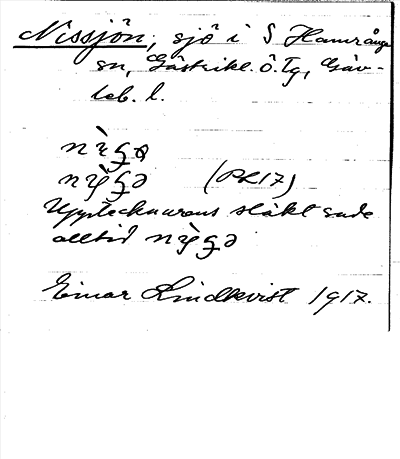 Nissjön, sjö i S Hamrånge
sn, Gästrikl. ö. tg, Gäv-
leb. l.
Upptecknarens släkt sade
alltid
Einar Lindkvist 1917.